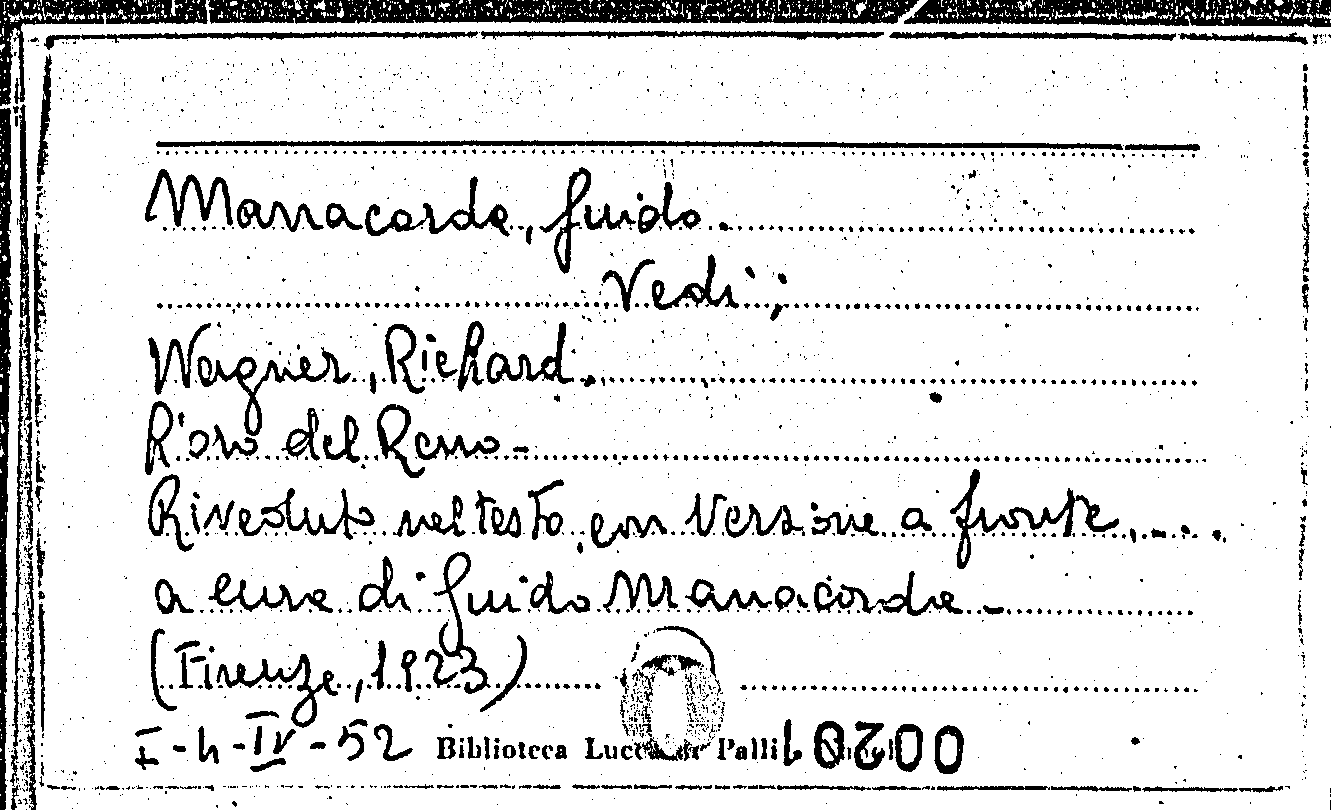 Manacorda, Guido.
Vedi;
Wagner, Richard.
R'oro del Reno -
Riveduto nel testo, con versione a fronte, ....
a cura di Guido Manacorda -
(Firenze, 1923)
I-h-IV-52 Biblioteca Lucchesi Palli